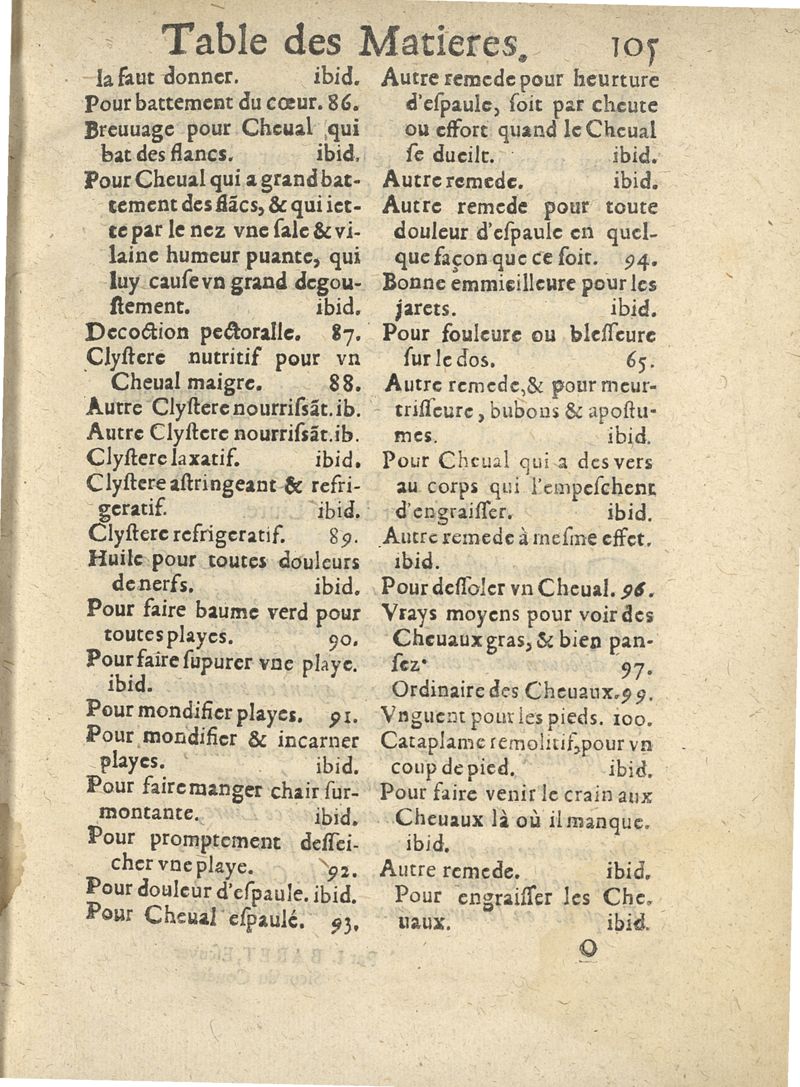 Table des Matieres. 105
la faut donner. ibid.
Pour battement du cœur. 86.
Breuuage pour Cheual qui
bat des flancs. ibid.
Pour Cheual qui a grand bat-
tement des flãcs, & qui iet-
te par le nez vne sale & vi-
laine humeur puante, qui
luy cause vn grand degou-
stement. ibid.
Decoction pectoralle. 87.
Clystere nutritif pour vn
Cheual maigre. 88.
Autre Clystere nourrissãt. ib.
Autre Clystere nourrissãt. ib.
Clystere laxatif. ibid.
Clystere astringeant & refri-
geratif. ibid.
Clystere refrigeratif. 89.
Huile pour toutes douleurs
de nerfs. ibid.
Pour faire baume verd pour
toutes playes. 90.
Pour faire supurer vne playe.
ibid.
Pour mondifier playes. 91.
Pour mondifier & incarner
playes. ibid.
Pour faire manger chair sur-
montante. ibid.
Pour promptement dessei-
cher vne playe. 92.
Pour douleur d'espaule. ibid.
Pour Cheual espaulé. 93.
Autre remede pour heurture
d'espaule, soit par cheute
ou effort quand le Cheual
se dueilt. ibid.
Autre remede. ibid.
Autre remede pour toute
douleur d'espaule en quel-
que façon que ce soit. 94.
Bonne emmieilleure pour les
jarets. ibid.
Pour fouleure ou blesseure
sur le dos. 65.
Autre remede, & pour meur-
trisseure, bubons & apostu-
mes. ibid.
Pour Cheual qui a des vers
au corps qui l'empeschent
d'engraisser. ibid.
Autre remede à mesme effet.
ibid.
Pour dessoler vn Cheual. 96.
Vrays moyens pour voir des
Cheuaux gras, & bien pan-
sez. 97.
Ordinaire des Cheuaux. 99.
Vnguent pour les pieds. 100.
Cataplame remolitif, pour vn
coup de pied. ibid.
Pour faire venir le crain aux
Cheuaux là où il manque.
ibid.
Autre remede. ibid.
Pour engraisser les Che-
uaux. ibid.
O